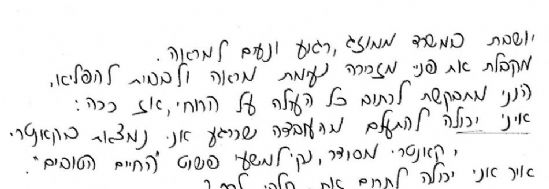 יושבת במשרד ממוזג, רגוע ונעים למראה.
מקבלת את פני מזכירה נעימת מראה ולבושה להפליא.
הנני מתבקשת לרשום כל העולה על רוחי, אז ככה:
איני יכולה להתעלם מהעובדה שכרגע אני נמצאת בקאנטרי
קאנטרי מסודר, נקי למשעי פשוט "החיים הטובים".
איך אני יכולה לתרום את